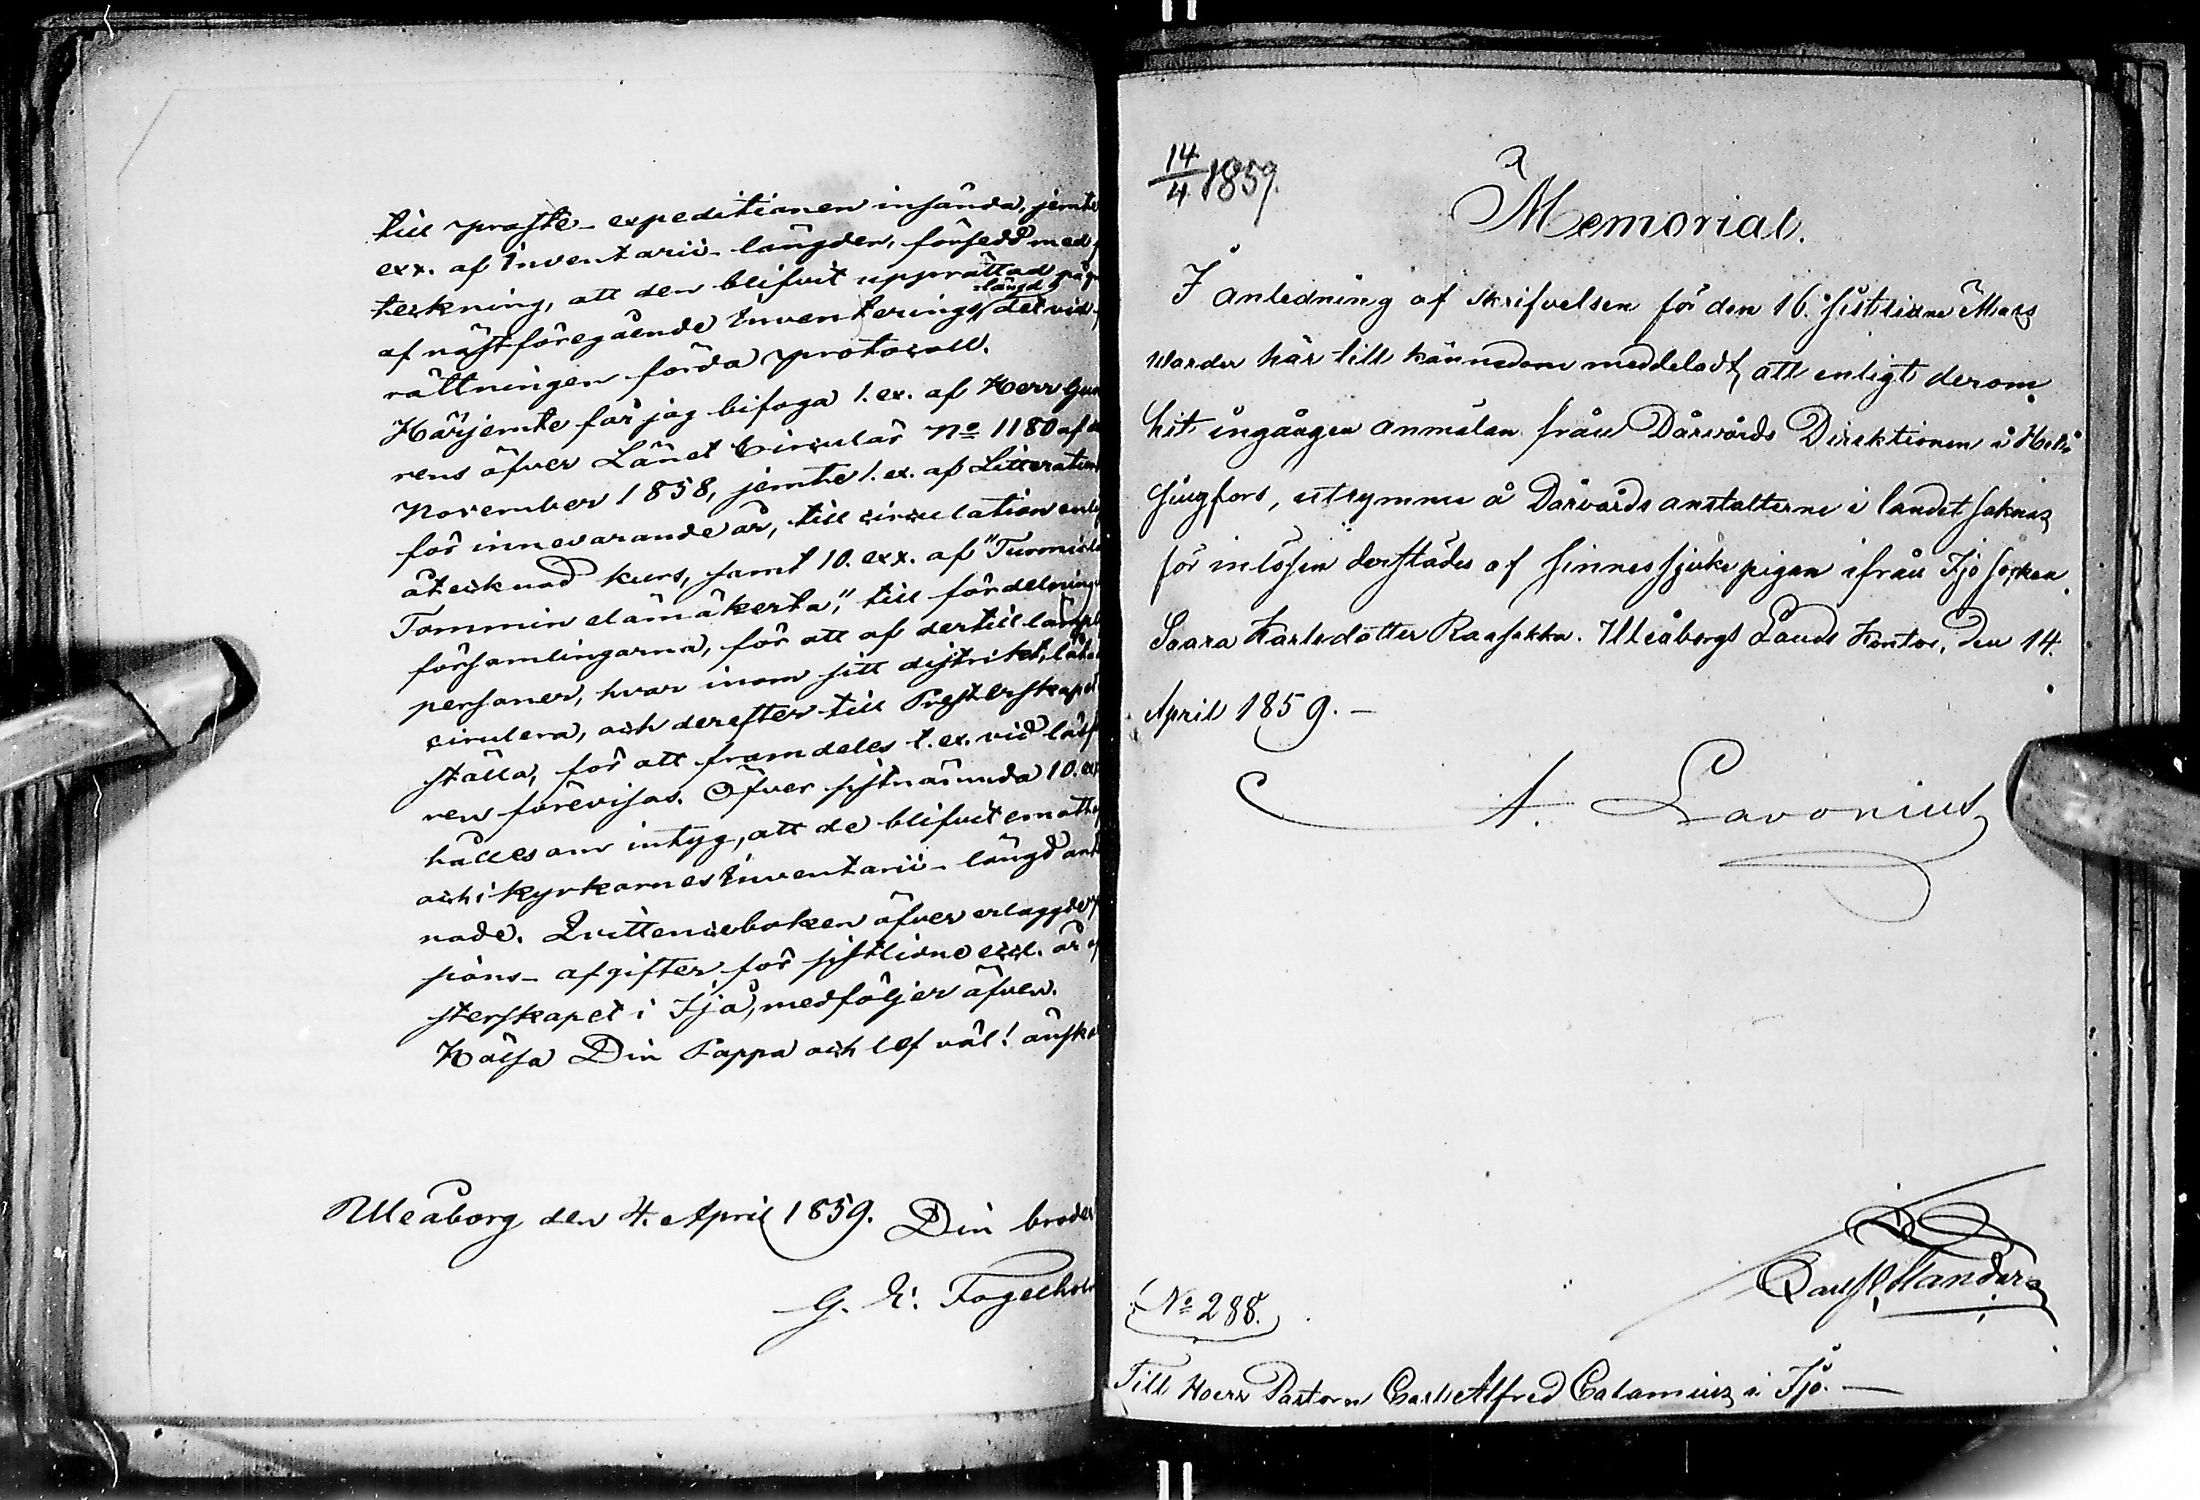 till prosts-expeditionen insända, jemte
exx. af Inventarii-längden, försedd med
teckning, att den blifvit upprättad på gr
af nästföregående Inventerings längd, det vid
rättningen förda protocoll.
Härjemte får jag bifoga 1. ex. af Herr Guv
rens öfver Länet Circulär No 1180 af
November 1858, jemte 1. ex. af Litteratur
för innevarande år, till circulation enl
åtecknad kurs, samt 10. exx. af "Turmiola
Tommin elämäkerta," till fördelning
församlingarna, för att af dertill lämpl
personer, hvar inom sitt distrikt, låta
cirulera, och derefter till Presterskapet
ställa, för att framdeles t. ex. vid läsf
ren förevisas. Öfver sistnämnda 10. ex
hålles om intyg, att de blifvit emotta
och i kyrkornes Inventarii-längd ant
nade. Qvittenceboken öfver erlaggde
sions-afgifter för sistlidne eccl. år af
sterskapet i Ijo, medföljer äfven.
Hälsa Din Pappa och lef väl! önska
Uleåborg den 4. April 1859. Din broder
G. E. Fogelholm
14/4 1859.
Memorial.
I anledning af skrifvelsen för den 16. sistlidne Mars
warder här till kännedom meddeladt, att enligt derom
hit ingången anmälan från Dårvårds Direktionen i Hel-
singfors, utrymme å Dårvårdsanstalterne i landet saknas
för inlösen derstädes af sinnessjuke pigan ifrån Ijo socken
Saara Karlsdotter Raasakka. Uleåborgs Lands Kontor, den 14.
April 1859.-
A. Lavonius
No 288.
Till Herr Pastorn Carl Alfred Calamnius i Ijo.-